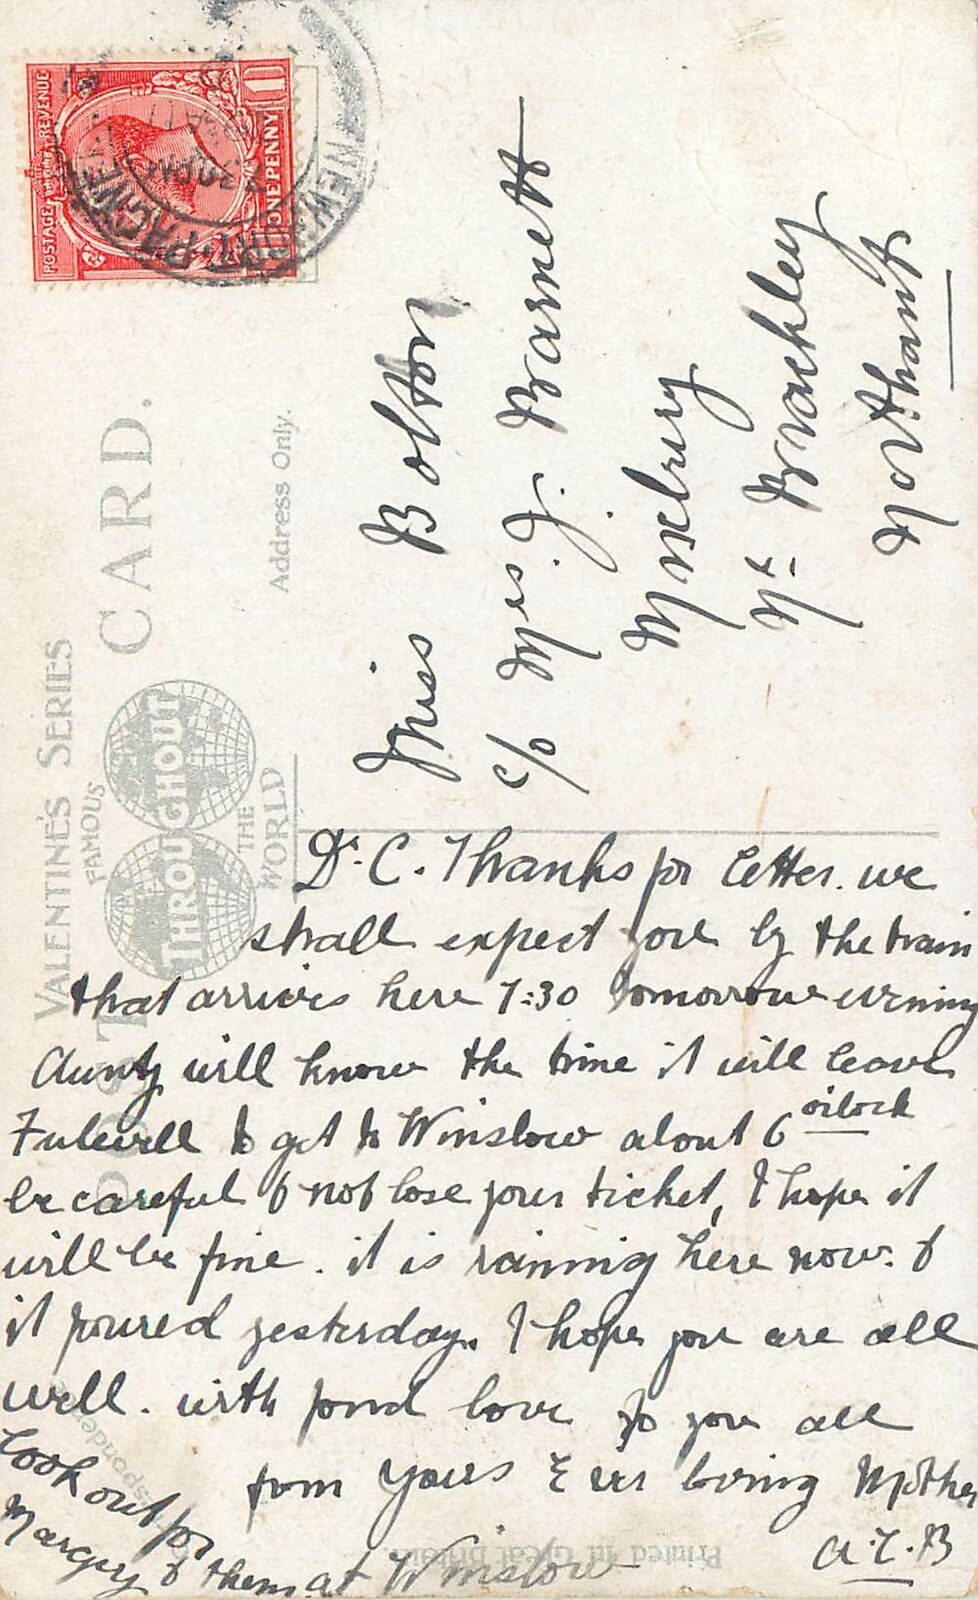 VALENTINE'S SERIES
FAMOUS
THROUGHOUT
THE
WORLD
POST CARD.
Address Only.
POSTAGE REVENUE
ONE PENNY
1
NEWPORT-PAGNELL
7.30 PM
Miss Bolton
c/o Mrs J. Barnett
Mixbury
Nr Brackley
Northants
Dr C. Thanks for letter. we
shall expect you by the train
that arrives here 7:30 tomorrow evening
Aunty will know the time it will leave
Fulwell to get to Winslow about 6 oclock
be careful & not lose your ticket, I hope it
will be fine. it is raining here now. &
it poured yesterday. I hope you are all
well. with fond love to you all
from yours Ever loving Mother
A.E.B
Look out for
Margery & them at Winslow
Printed in Great Britain